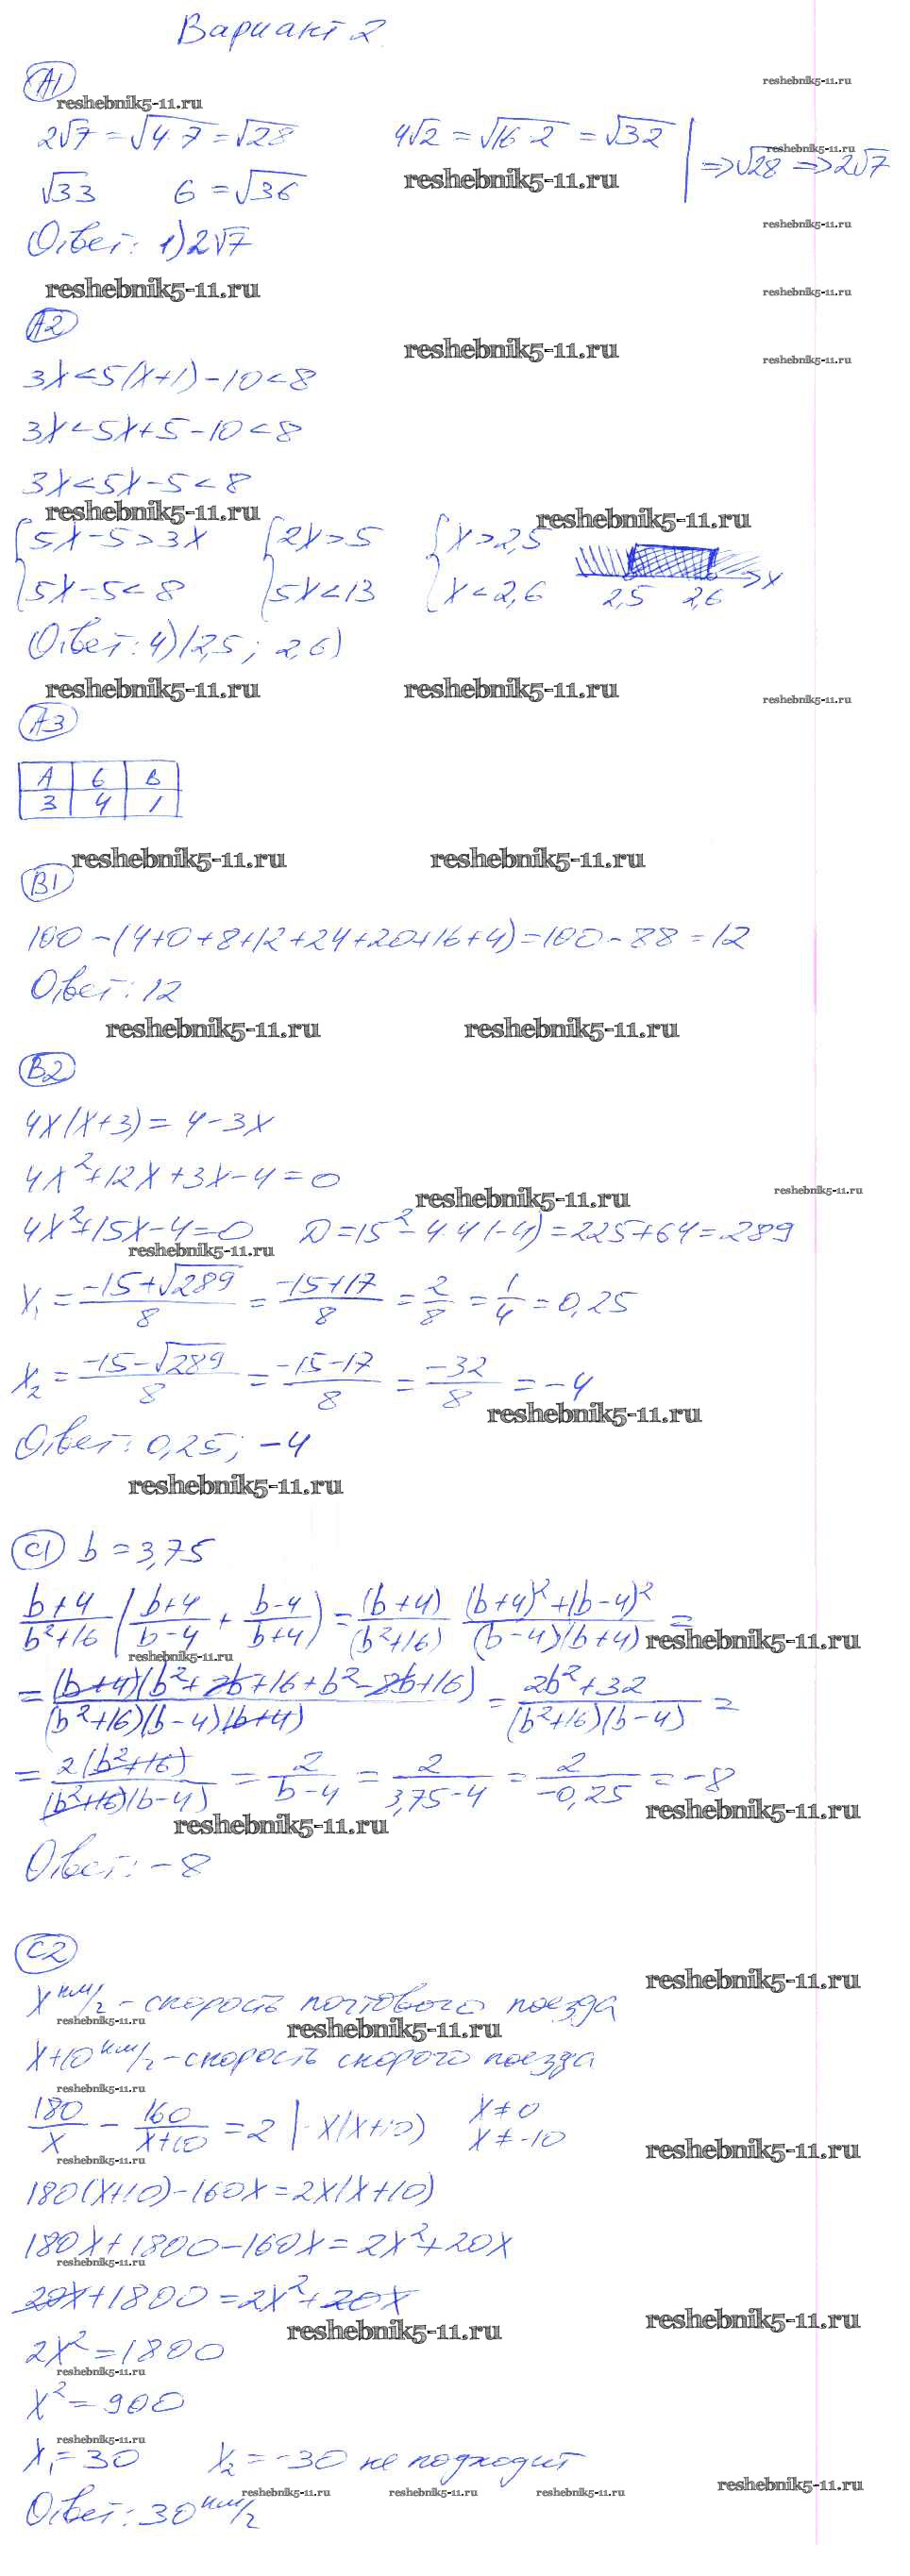 Вариант 2
А1
2√7 = √4·7 = √28    4√2 = √16·2 = √32 | => √28 => 2√7
√33    6 = √36
Ответ: 1) 2√7
А2
3x < 5(x+1) - 10 < 8
3x < 5x + 5 - 10 < 8
3x < 5x - 5 < 8
{5x - 5 > 3x    {2x > 5    {x > 2,5
{5x - 5 < 8    {5x < 13    {x < 2,6    2,5    2,6    x
Ответ: 4) (2,5; 2,6)
А3
А | Б | В
3 | 4 | 1
В1
100 - (4+0+8+12+24+20+16+4) = 100 - 88 = 12
Ответ: 12
В2
4x(x+3) = 4 - 3x
4x² + 12x + 3x - 4 = 0
4x² + 15x - 4 = 0    D = 15² - 4·4·(-4) = 225 + 64 = 289
x₁ = (-15+√289)/8 = (-15+17)/8 = 2/8 = 1/4 = 0,25
x₂ = (-15-√289)/8 = (-15-17)/8 = -32/8 = -4
Ответ: 0,25; -4
С1 b = 3,75
(b+4)/(b²+16) ((b+4)/(b-4) + (b-4)/(b+4)) = (b+4)/(b²+16) · ((b+4)²+(b-4)²)/((b-4)(b+4)) =
= (b+4)(b²+8b+16+b²-8b+16)/((b²+16)(b-4)(b+4)) = (2b²+32)/((b²+16)(b-4)) =
= 2(b²+16)/((b²+16)(b-4)) = 2/(b-4) = 2/(3,75-4) = 2/(-0,25) = -8
Ответ: -8
С2
x км/г - скорость почтового поезда
x+10 км/г - скорость скорого поезда
180/x - 160/(x+10) = 2 | · x(x+10)    x ≠ 0
x ≠ -10
180(x+10) - 160x = 2x(x+10)
180x + 1800 - 160x = 2x² + 20x
20x + 1800 = 2x² + 20x
2x² = 1800
x² = 900
x₁ = 30    x₂ = -30 не подходит
Ответ: 30 км/г
reshebnik5-11.ru